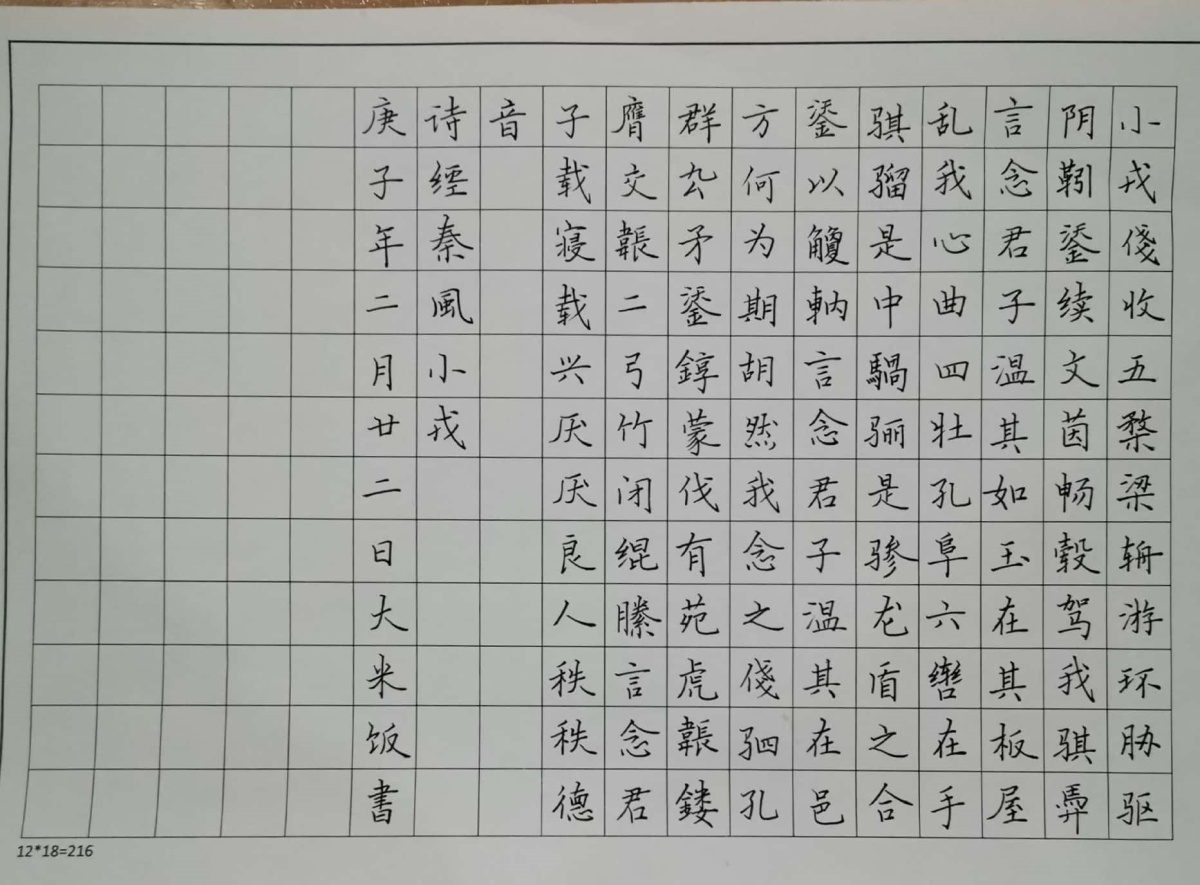 小戎俴收五楘梁辀游环胁驱
阴靷鋈续文茵畅毂驾我骐馵
言念君子温其如玉在其板屋
乱我心曲四牡孔阜六辔在手
骐骝是中騧骊是骖龙盾之合
鋈以觼軜言念君子温其在邑
方何为期胡然我念之俴驷孔
群厹矛鋈錞蒙伐有苑虎韔镂
膺交韔二弓竹闭绲縢言念君
子载寝载兴厌厌良人秩秩德
音
诗經秦風小戎
庚子年二月廿二日大米饭書
12*18=216